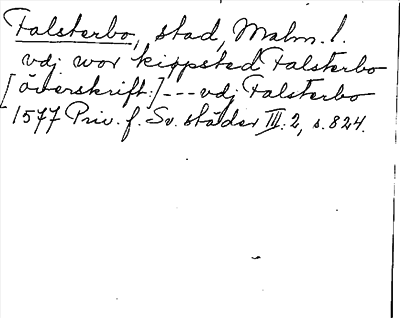 Falsterbo, stad, Malm. l.
vdj wor kiøpsted Falsterbo
[överskrift:] --- vdj Falsterbo
1577 Priv. f. Sv. städer III: 2, s. 824.